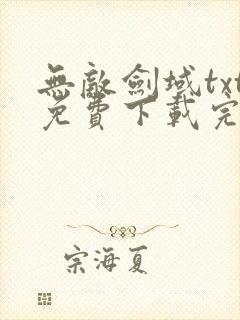 無敵劍域txt
免費下載完
宗海夏